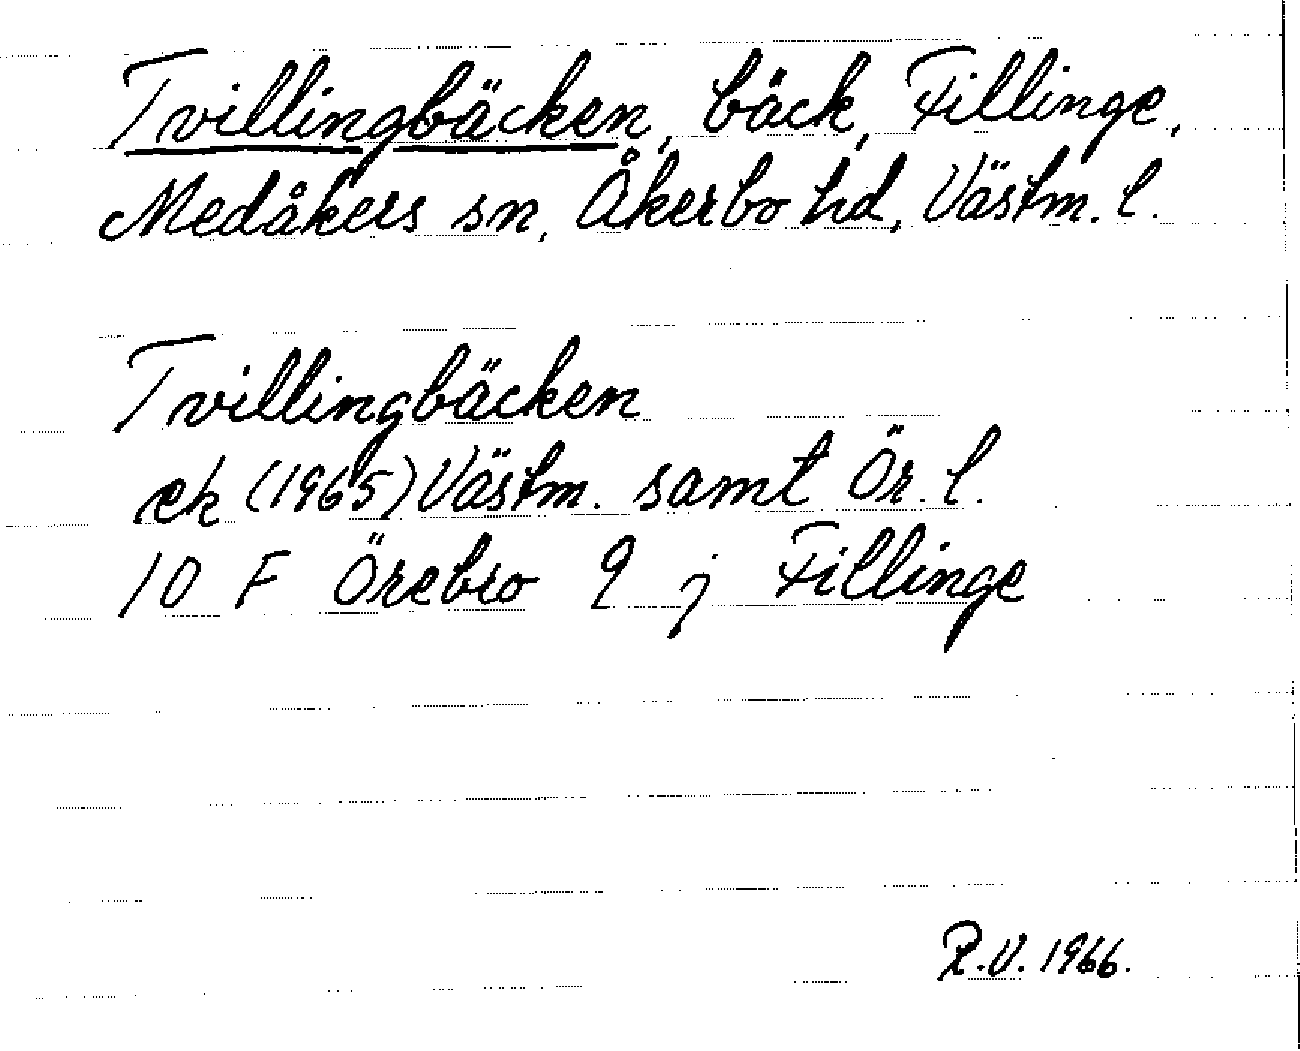 Tvillingbäcken, bäck, Fillinge,
Medåkers sn, Åkerbo hd, Västm. l.
Tvillingbäcken
ek (1965) Västm. samt Ör. l.
10 F Örebro 9 j Fillinge
R.V. 1966.